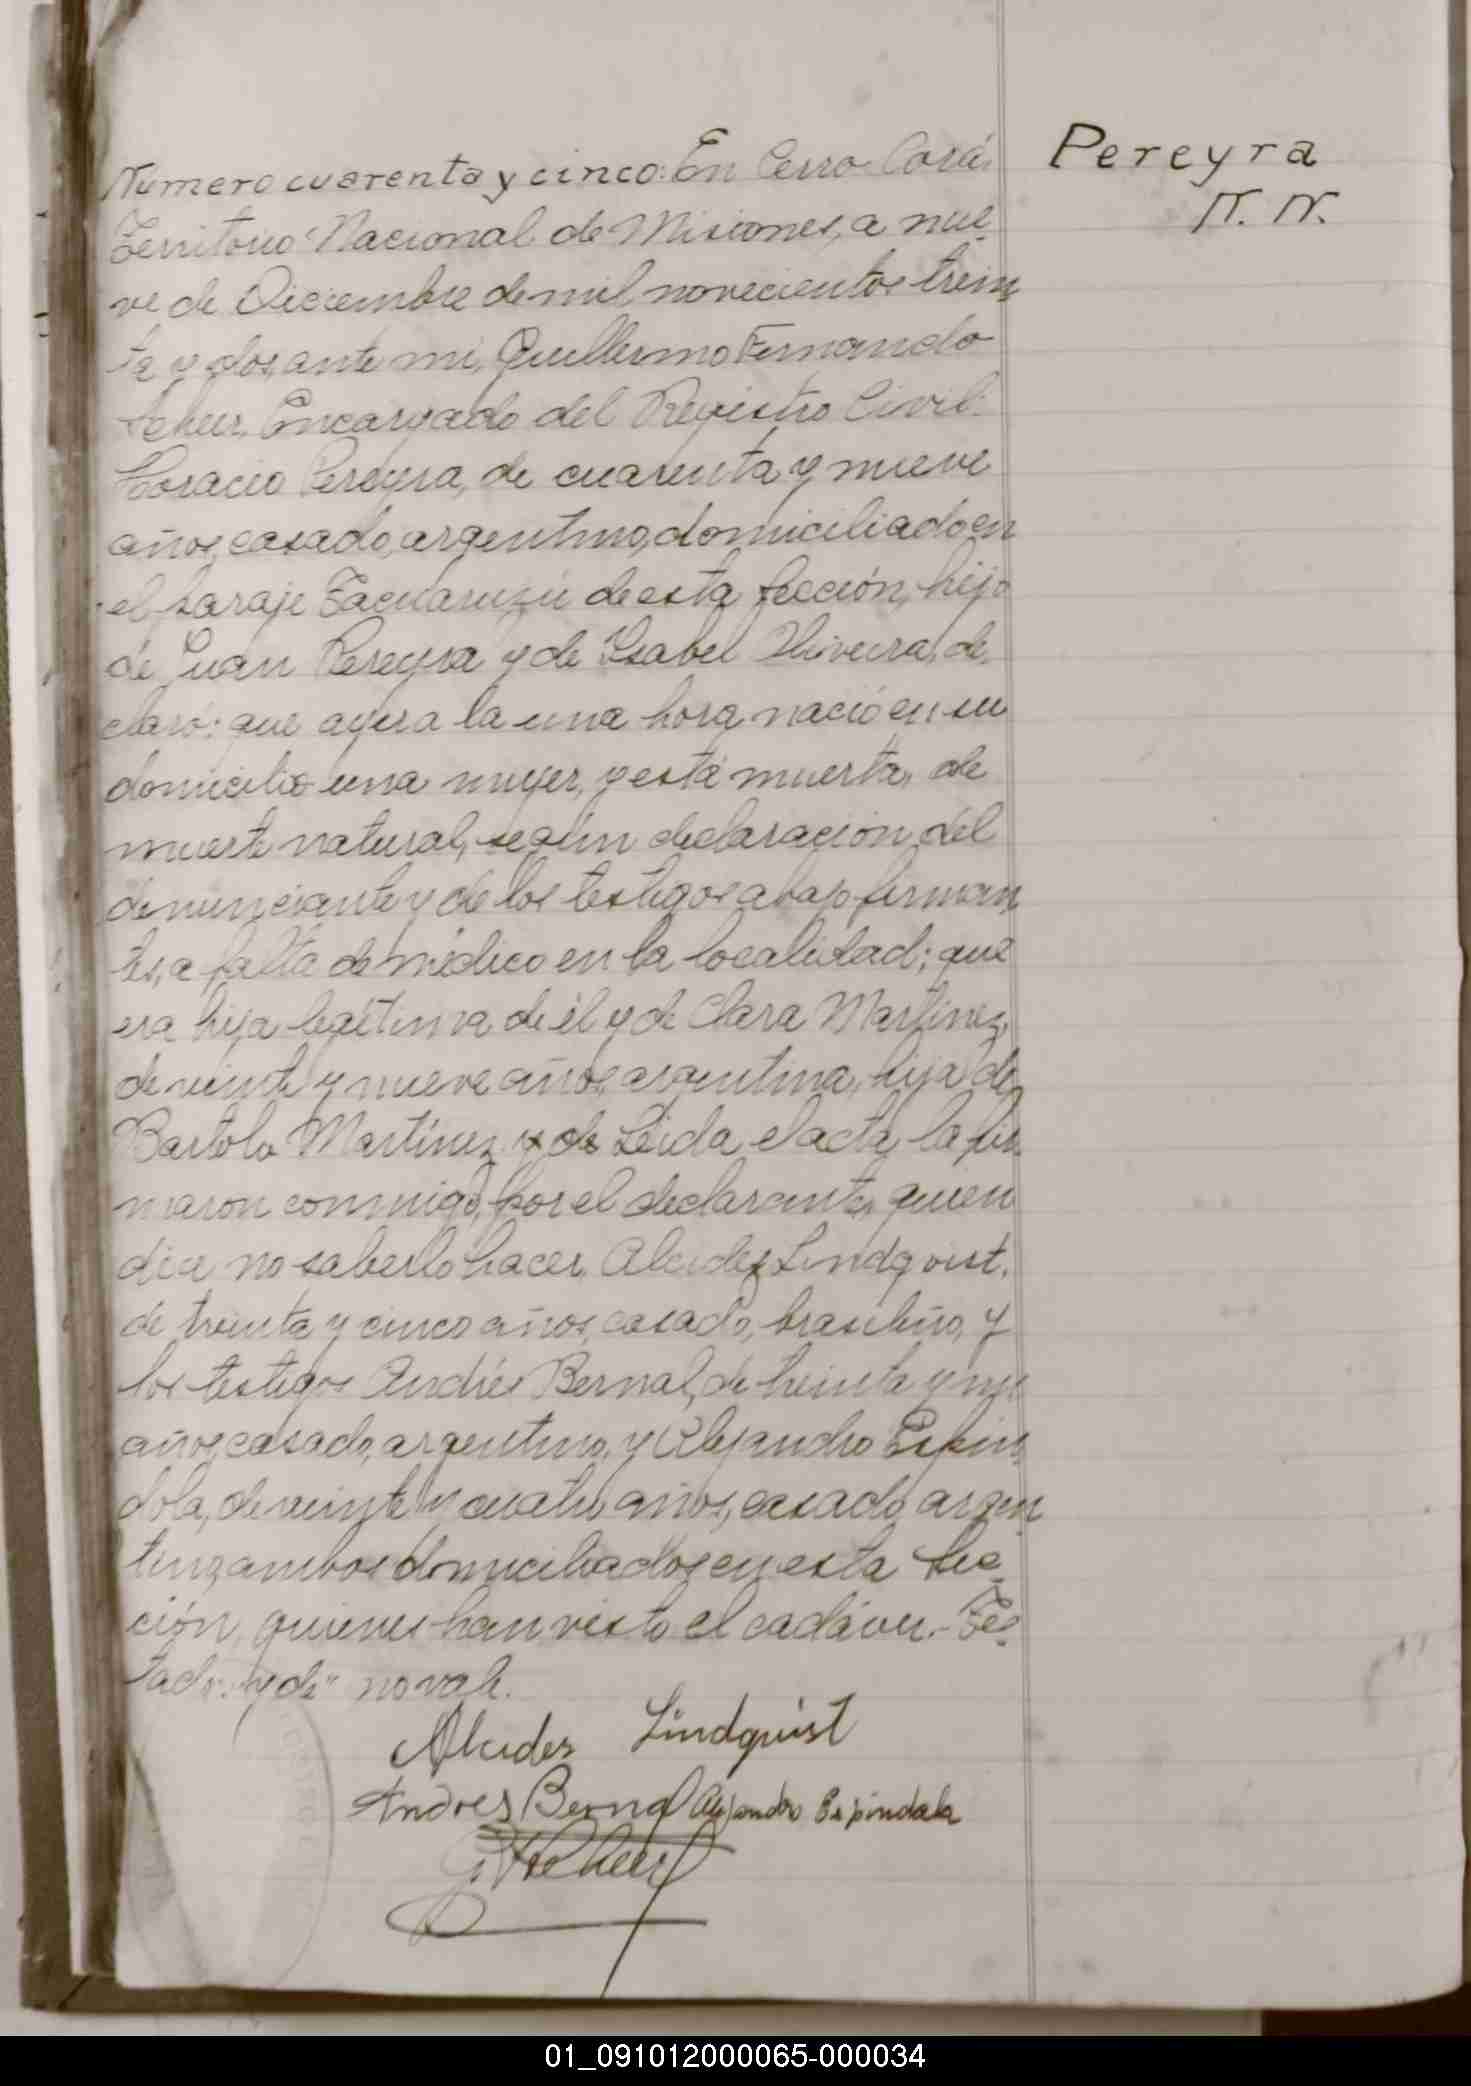 Numero cuarenta y cinco: En Cerro Corá,
Territorio Nacional de Misiones, a nue-
ve de Diciembre de mil novecientos trein
ta y dos, ante mi, Guillermo Fernando
Encargado del Registro Civil:
Horacio Pereyra, de cuarenta y nueve
años, casado, argentino, domiciliado en
el paraje Tacuaruzú de esta Sección, hijo
de Juan Pereyra y de Ysabel Oliveira, de
claró: que ayer a la una hora nació en su
domicilio una mujer, y está muerta, de
muerte natural, según declaración del
denunciante y de los testigos abajo firman
tes, a falta de médico en la localidad; que
era hija legítima de él y de Clara Martínez,
de veinte y nueve años, argentina, hija de
Bartola Martínez y de Leida el acta, la fir
maron conmigo, por el declarante, quien
dice no saberlo hacer, Alcides Lindqvist,
de treinta y cinco años, casado, brasileño, y
los testigos Andrés Bernal, de treinta y
años, casado, argentino, y Alejandro Espin
dola, de veinte y cuatro años, casado, argen
tino, ambos domiciliados en esta Sec-
ción, quienes han visto el cadáver.- Tes-
tado: "y de" no vale.
Alcides Lindquist
Andres Bernal Alejandro Espindola
Pereyra
N. N.
01_091012000065-000034